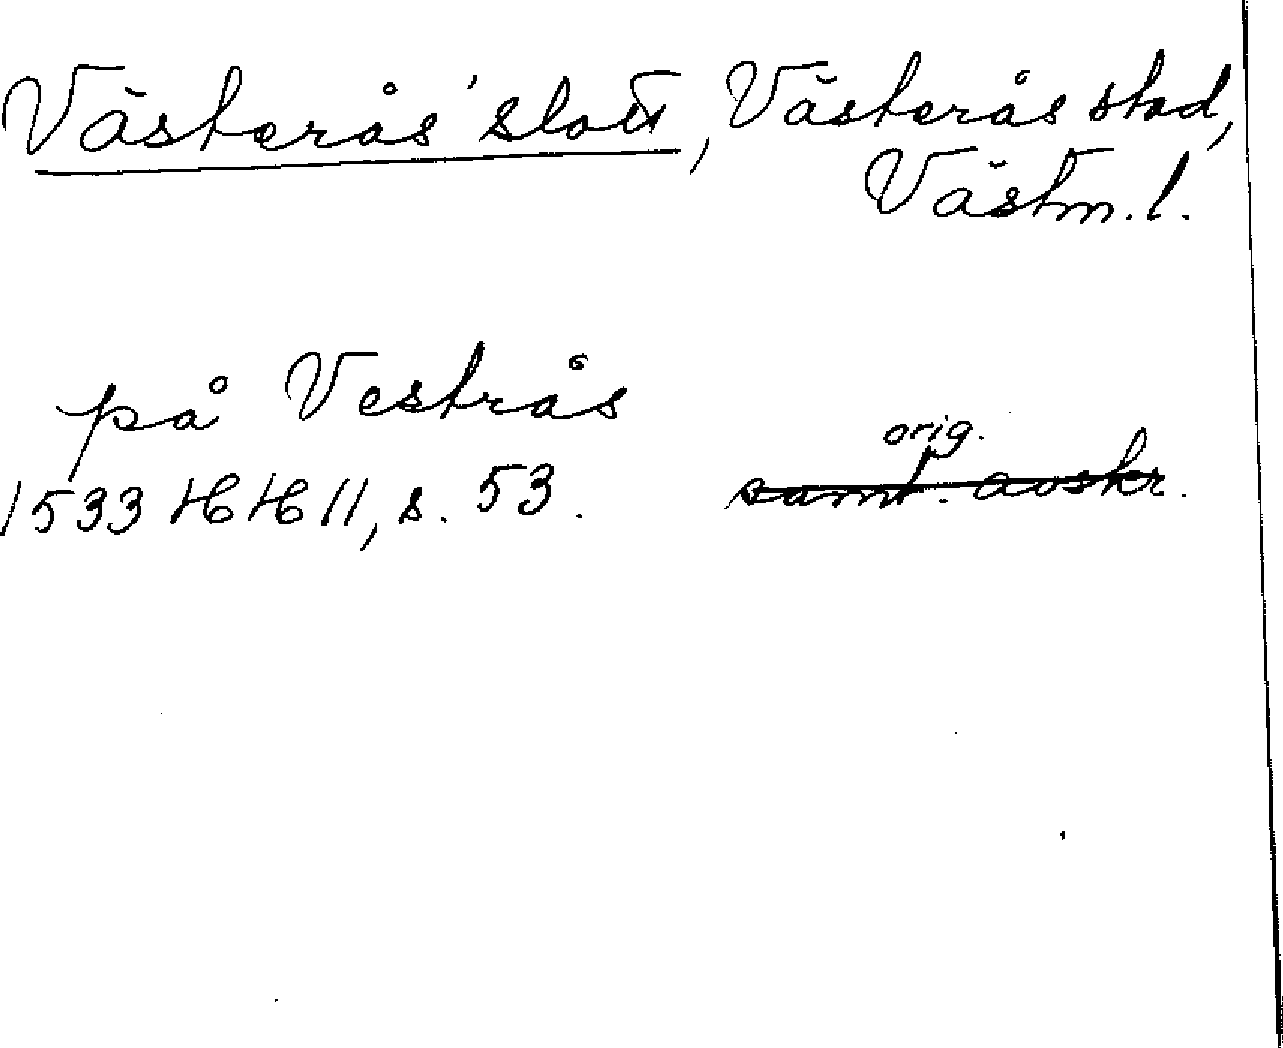 Västerås slott, Västerås stad,
Västm. l.
på Vestrås
orig.
1533 HH 11, s. 53. samt. avskr.